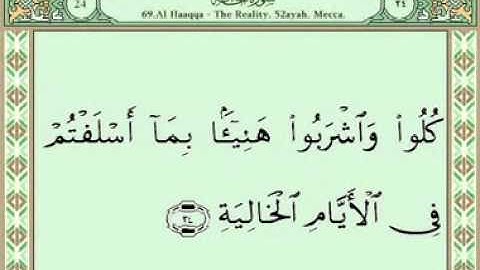 24
سورة الحاقة
٢٤
69.Al Haaqqa - The Reality. 52ayah. Mecca.
كُلُوا۟ وَٱشْرَبُوا۟ هَنِيٓـًٔۢا بِمَآ أَسْلَفْتُمْ
فِى ٱلْأَيَّامِ ٱلْخَالِيَةِ ٢٤